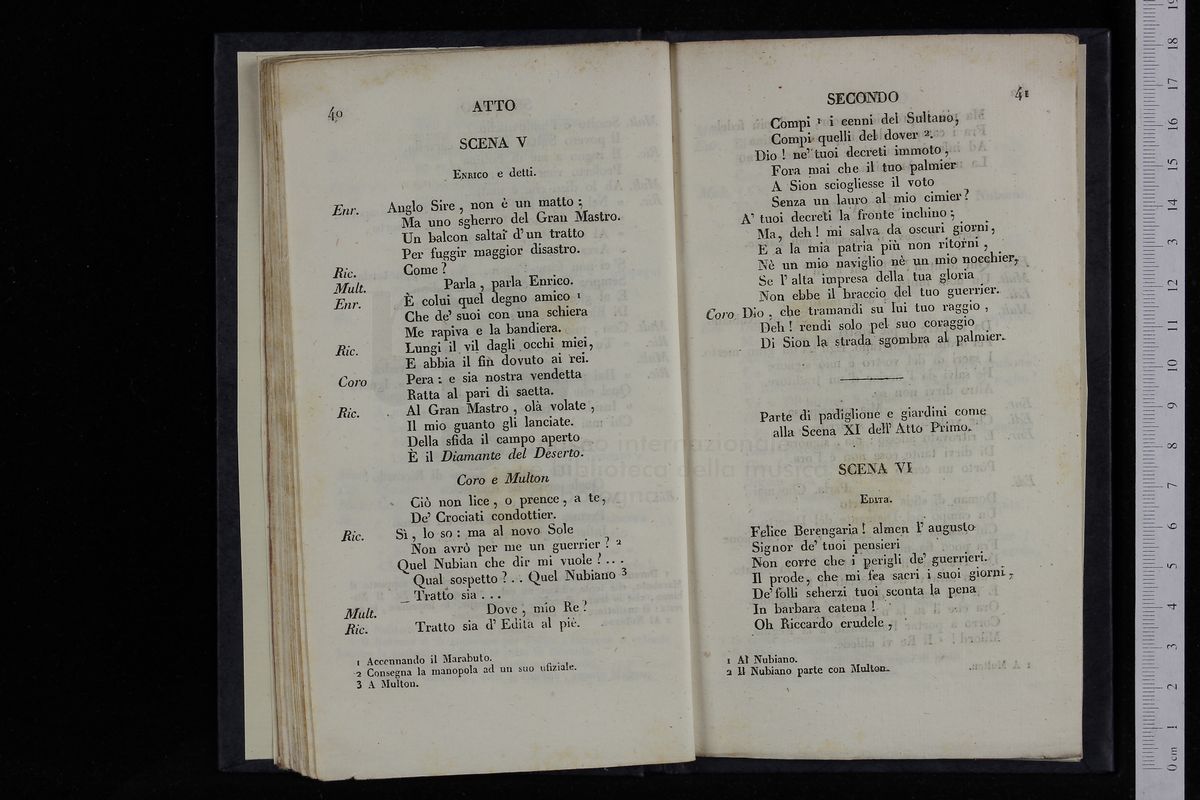 40
ATTO
SCENA V
ENRICO e detti.
Enr. Anglo Sire, non è un matto;
Ma uno sgherro del Gran Mastro.
Un balcon saltai d'un tratto
Per fuggir maggior disastro.
Ric. Come?
Mult. Parla, parla Enrico.
Enr. È colui quel degno amico 1
Che de' suoi con una schiera
Me rapiva e la bandiera.
Ric. Lungi il vil dagli occhi miei,
E abbia il fin dovuto ai rei.
Coro Pera: e sia nostra vendetta
Ratta al pari di saetta.
Ric. Al Gran Mastro, olà volate,
Il mio guanto gli lanciate.
Della sfida il campo aperto
È il Diamante del Deserto.
Coro e Multon
Ciò non lice, o prence, a te,
De' Crociati condottier.
Ric. Sì, lo so: ma al novo Sole
Non avrò per me un guerrier? 2
Quel Nubian che dir mi vuole?...
Qual sospetto?.. Quel Nubiano 3
Tratto sia...
Mult. Dove, mio Re?
Ric. Tratto sia d'Edita al piè.
1 Accennando il Marabuto.
2 Consegna la manopola ad un suo ufiziale.
3 A Multon.
SECONDO
41
Compi 1 i cenni del Sultano,
Compi quelli del dover 2.
Dio! ne' tuoi decreti immoto,
Fora mai che il tuo palmier
A Sion sciogliesse il voto
Senza un lauro al mio cimier?
A' tuoi decreti la fronte inchino;
Ma, deh! mi salva da oscuri giorni,
E a la mia patria più non ritorni,
Nè un mio naviglio nè un mio nocchier,
Se l'alta impresa della tua gloria
Non ebbe il braccio del tuo guerrier.
Coro Dio, che tramandi su lui tuo raggio,
Deh! rendi solo pel suo coraggio
Di Sion la strada sgombra al palmier.
Parte di padiglione e giardini come
alla Scena XI dell'Atto Primo.
SCENA VI
EDITA.
Felice Berengaria! almen l'augusto
Signor de' tuoi pensieri
Non corre che i perigli de' guerrieri.
Il prode, che mi fea sacri i suoi giorni,
De' folli scherzi tuoi sconta la pena
In barbara catena!
Oh Riccardo crudele,
1 Al Nubiano.
2 Il Nubiano parte con Multon.